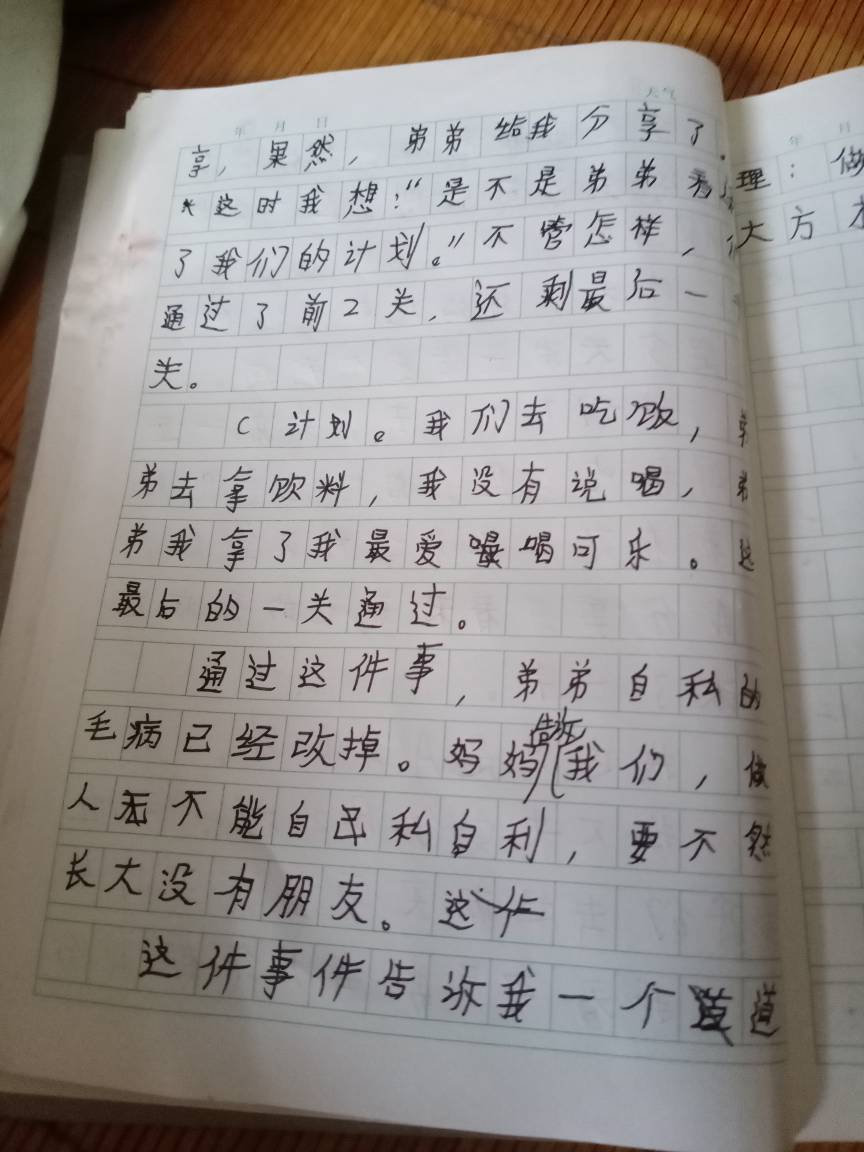 年 月 日 天气
享，果然，弟弟给我分享了。
这时我想：“是不是弟弟看
了我们的计划。”不管怎样，
通过了前2关，还剩最后一
关。
C计划。我们去吃饭，弟
弟去拿饮料，我没有说喝，弟
弟我拿了我最爱喝可乐。这
最后的一关通过。
通过这件事，弟弟自私的
毛病已经改掉。妈妈告诉我们，做
人不能自己私自利，要不然
长大没有朋友。这件
这件事件告诉我一个道
年 月
理：做
大方